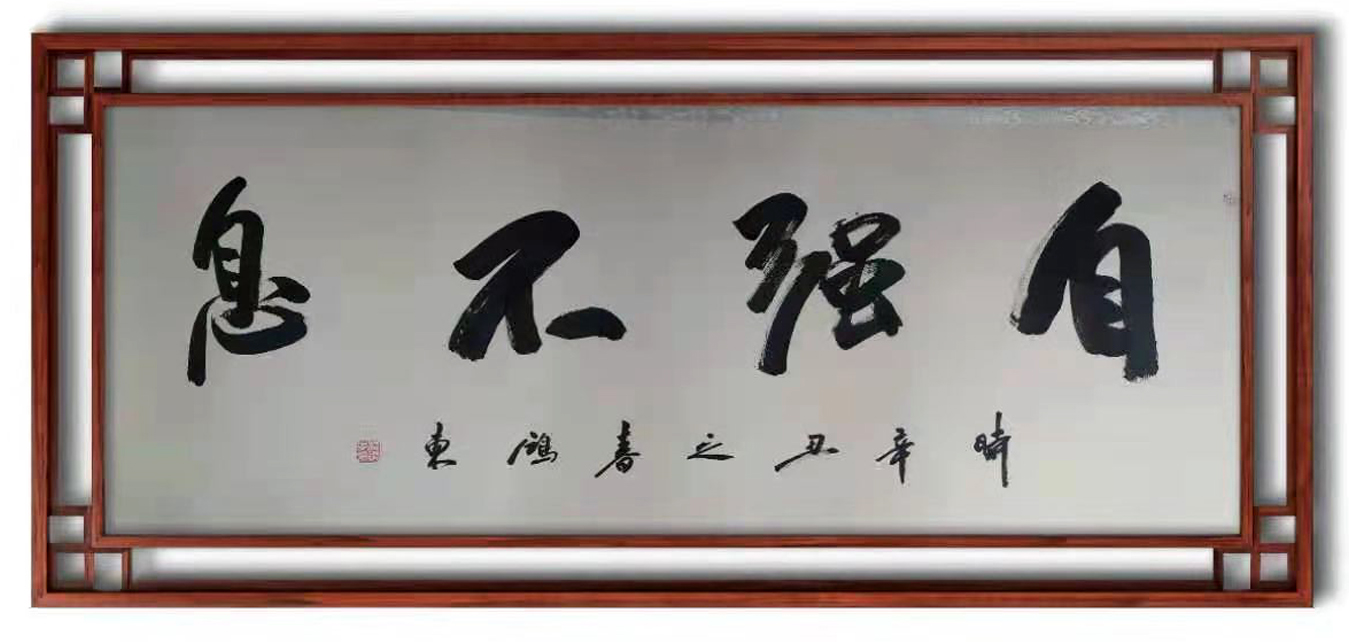 自强不息
時辛丑之春鴻東